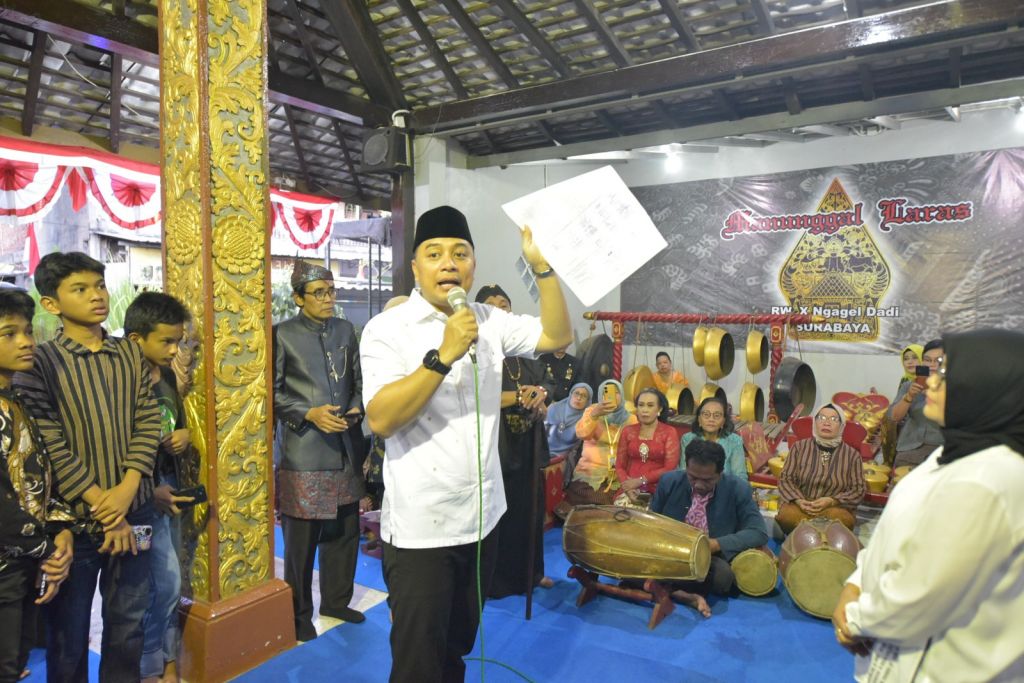 Manunggal Laras
RW. X Ngagel Dadi
SURABAYA